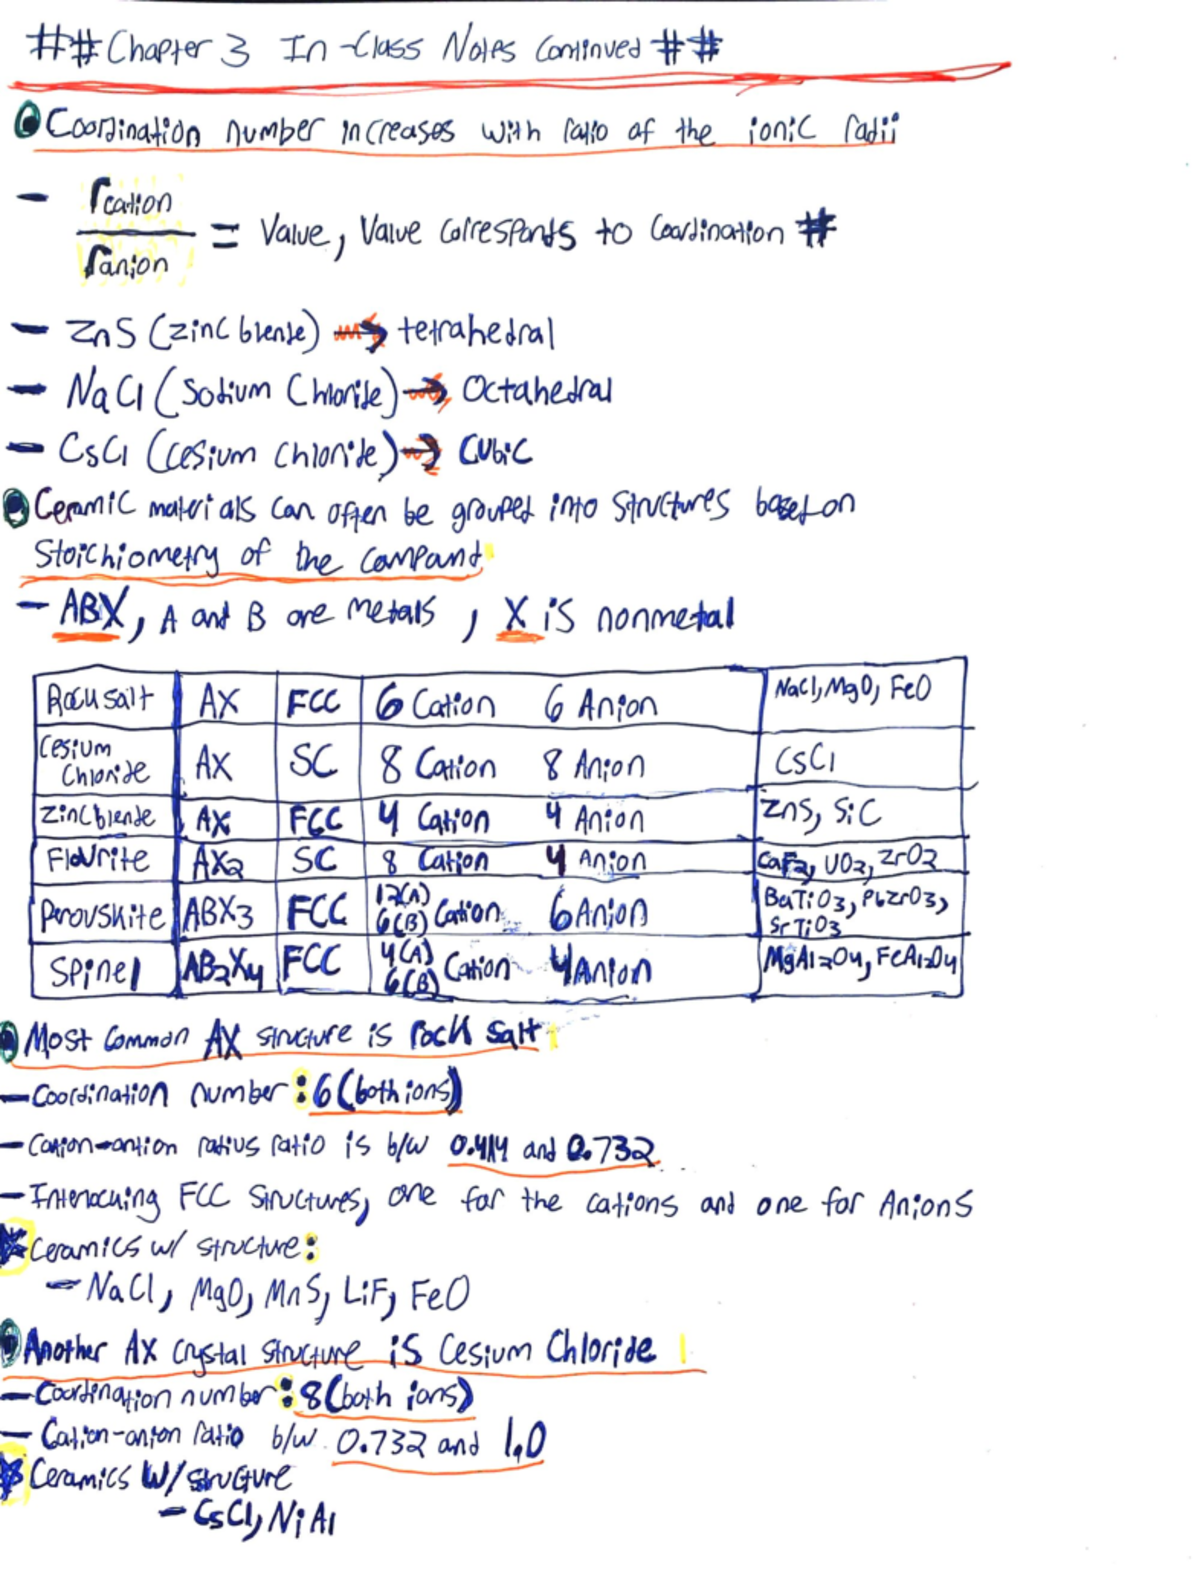 ## Chapter 3 In-Class Notes Continued ##
Coordination number increases with ratio of the ionic radii
- rcation / ranion = Value, Value corresponds to Coordination #
- ZnS (zinc blende) → tetrahedral
- NaCl (Sodium Chloride) → Octahedral
- CsCl (cesium chloride) → Cubic
Ceramic materials can often be grouped into structures based on
Stoichiometry of the compound
- ABX, A and B are metals, X is nonmetal
Rock salt AX FCC 6 Cation 6 Anion NaCl, MgO, FeO
Cesium Chloride AX SC 8 Cation 8 Anion CsCl
Zinc blende AX FCC 4 Cation 4 Anion ZnS, SiC
Flourite AX2 SC 8 Cation 4 Anion CaF2, UO2, ZrO2
Perovskite ABX3 FCC 12(A) 6(B) Cation 6 Anion BaTiO3, PbZrO3, SrTiO3
Spinel AB2X4 FCC 4(A) 6(B) Cation 4 Anion MgAl2O4, FeAl2O4
Most common AX structure is rock salt
- Coordination number: 6 (both ions)
- Cation-antion radius ratio is b/w 0.414 and 0.732
- Interlocking FCC Structures, one for the cations and one for Anions
Ceramics w/ structure:
- NaCl, MgO, MnS, LiF, FeO
Another AX crystal structure is Cesium Chloride
- Coordination number: 8 (both ions)
- Cation-anion ratio b/w 0.732 and 1.0
Ceramics w/ structure
- CsCl, NiAl